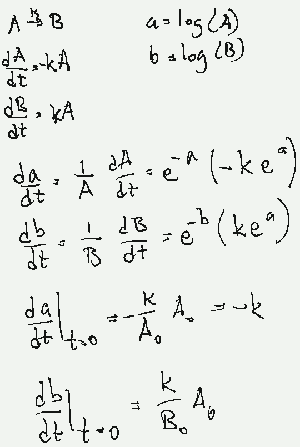 A →k B    a = log(A)
dA/dt = -kA    b = log(B)
dB/dt = kA
da/dt = 1/A dA/dt = e^-a (-k e^a)
db/dt = 1/B dB/dt = e^-b (k e^a)
da/dt |t=0 = -k/A₀ A₀ = -k
db/dt |t=0 = k/B₀ A₀